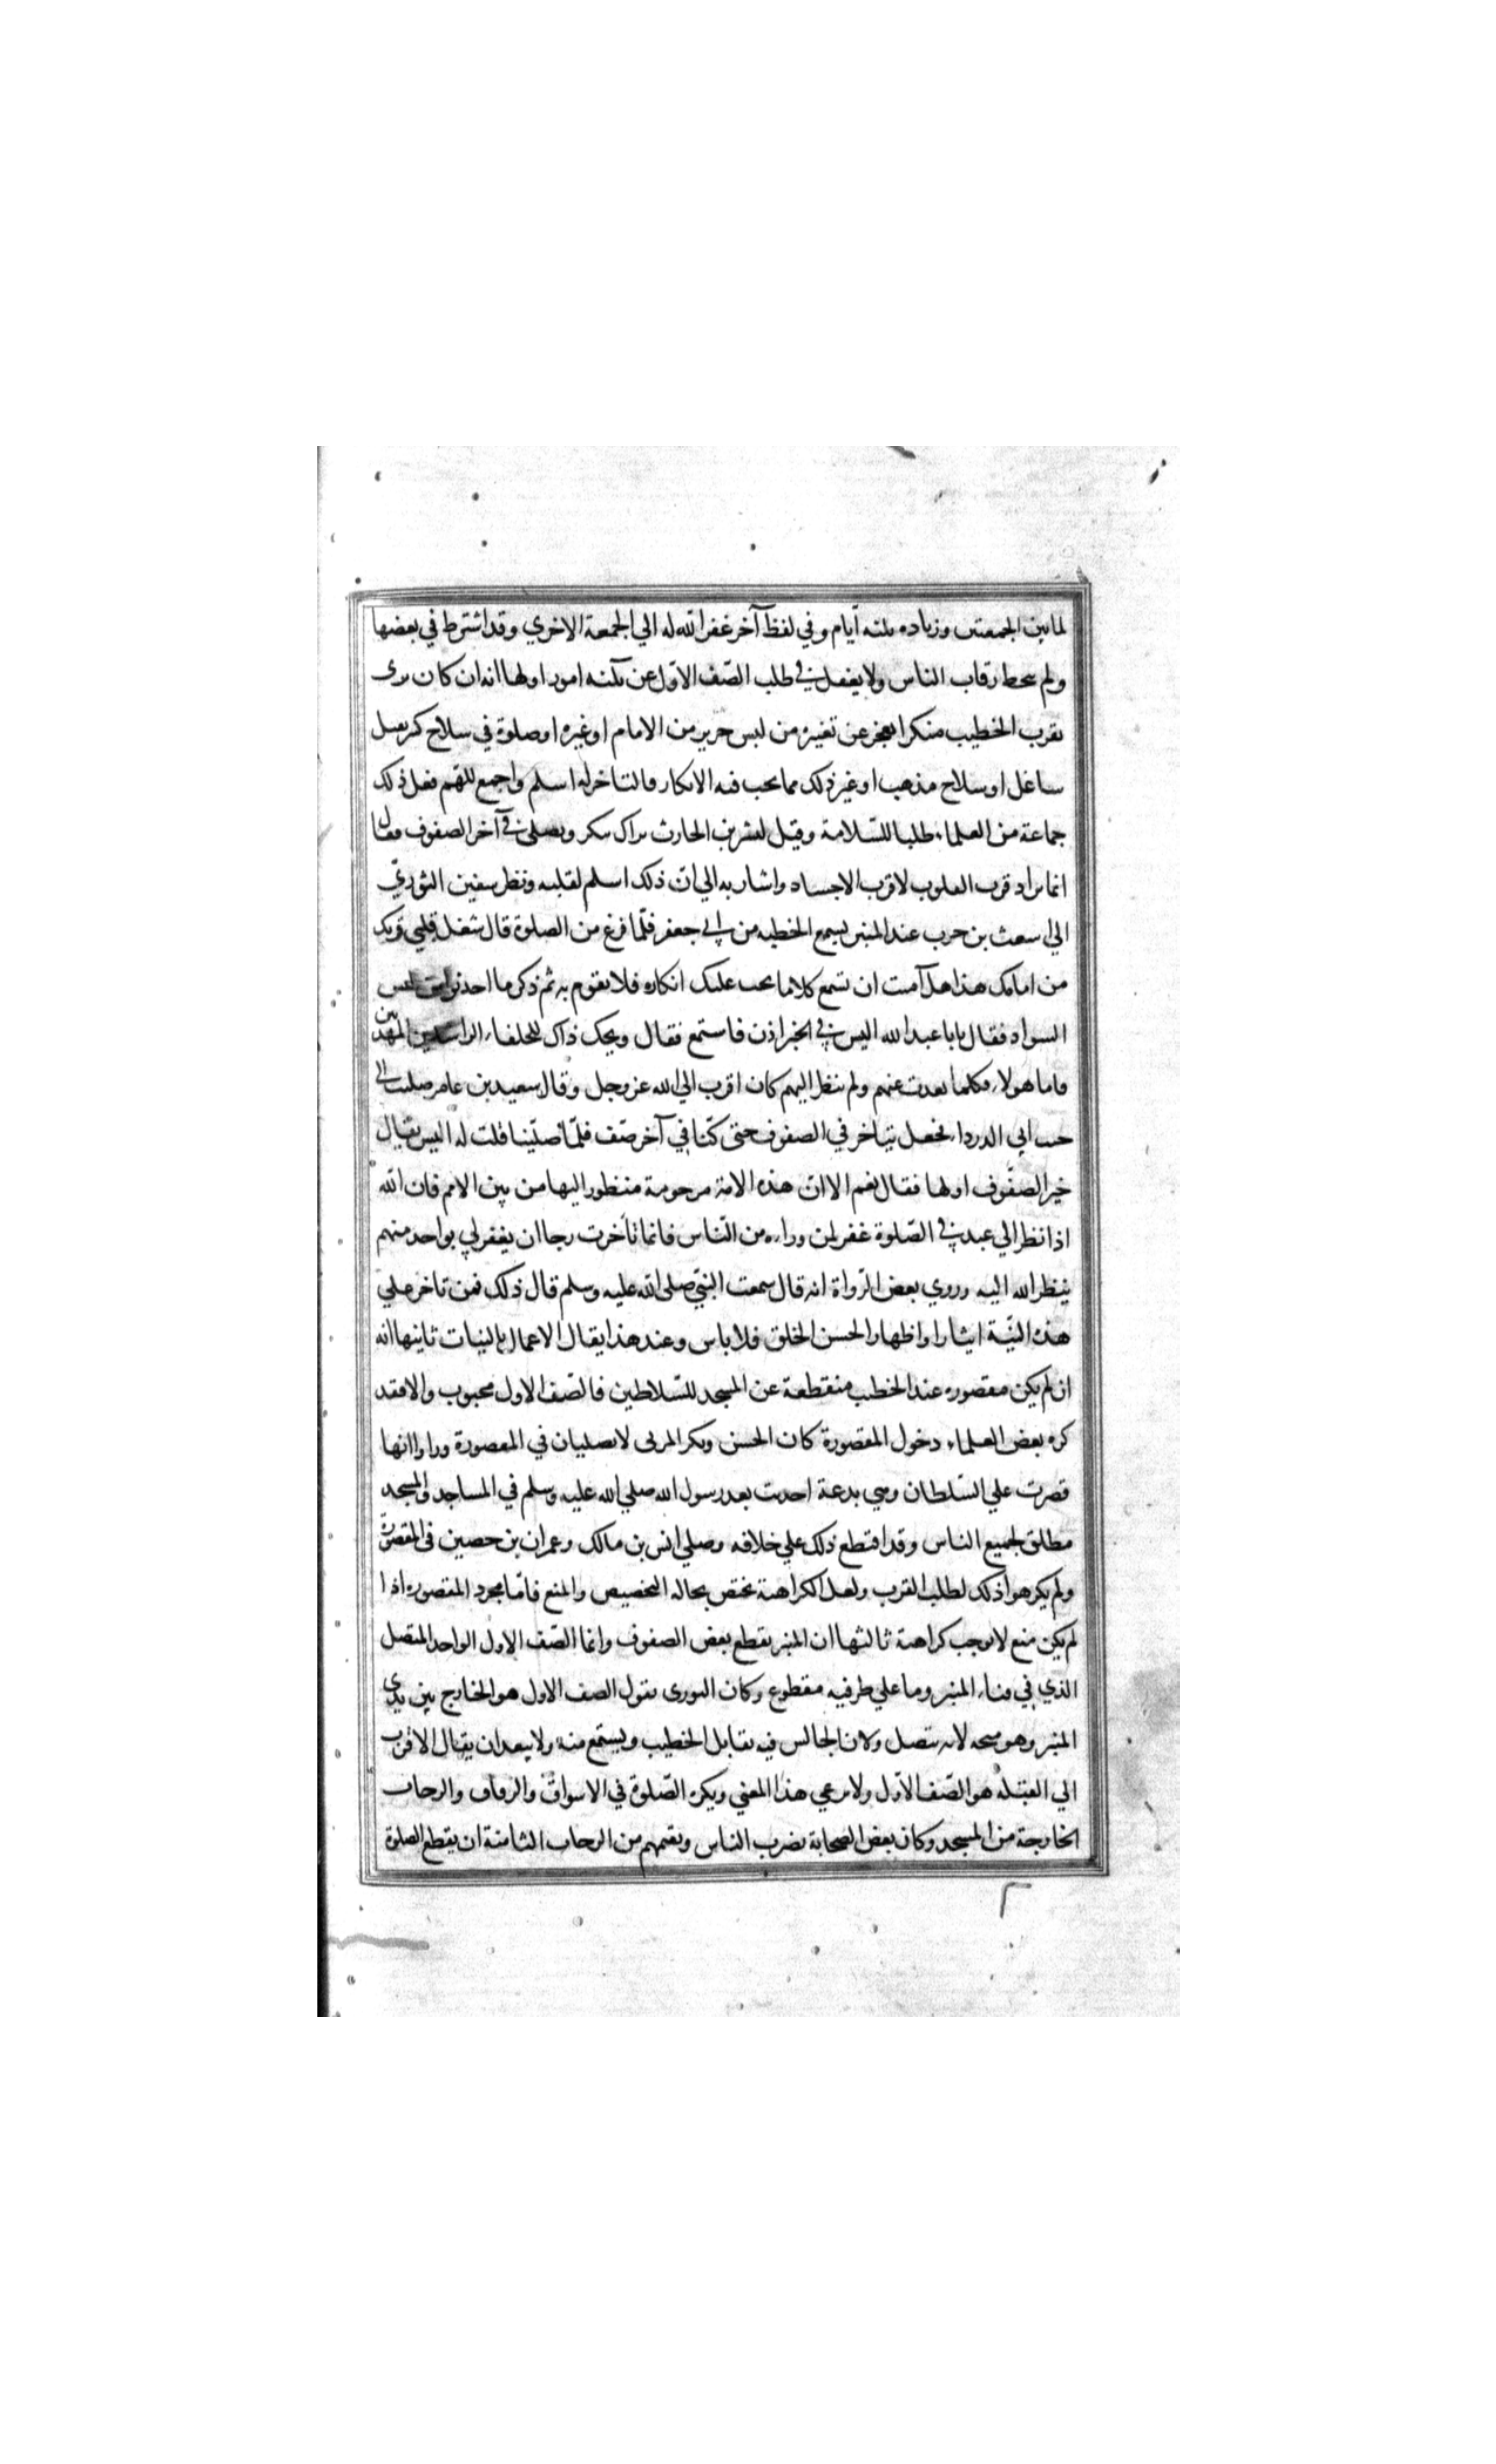 لما بين الجمعتين وزياده ثلثه أيام وفي لفظ آخر غفر الله له الي الجمعة الاخري وقد اشترط في بعضها
ولم يتحط رقاب الناس ولا يغفل في طلب الصف الاول عن ثلثه امور اولها انه ان كان يرى
بقرب الخطيب منكرا يعجز عن تغييره من لبس حرير من الامام او غيره او صلوة في سلاح كثر ثقيل
شاغل او سلاح مذهب او غير ذلك مما يجب فيه الانكار فالتاخر له اسلم واجمع للهم فعل ذلك
جماعة من العلماء طلبا للسلامة وقيل لبشر بن الحارث نراك تبكر وتصلي في آخر الصفوف فقال
انما يراد قرب القلوب لا قرب الاجساد واشار به الي ان ذلك اسلم لقلبه ونظر سفين الثوري
الي شعيث بن حرب عند المنبر يسمع الخطبه من ابي جعفر فلما فرغ من الصلوة قال شغل قلبي قربك
من امامك هذا هل آمنت ان تسمع كلاما يجب عليك انكاره فلا تقوم به ثم ذكر ما احدثوا من لبس
السواد فقال يابا عبد الله اليس في الخبر اذن فاستمع فقال ويحك ذاك للخلفاء الراشدين المهديين
فاما هولاء فكلما بعدت عنهم ولم تنظر اليهم كان اقرب الي الله عز وجل وقال سعيد بن عامر صليت الي
جنب ابي الدرداء فجعل يتاخر في الصفوف حتى كنا في آخر صف فلما صلينا قلت له اليس يقال
خير الصفوف اولها فقال نعم الا ان هذه الامة مرحومة منظور اليها من بين الامم فان الله
اذا نظر الي عبد في الصلوة غفر لمن وراءه من الناس فانما تأخرت رجا ان يغفر لي بواحد منهم
ينظر الله اليه وروي بعض الرواة انه قال سمعت النبي صلى الله عليه وسلم قال ذلك فمن تاخر علي
هذه النية ايثارا واظهارا لحسن الخلق فلا باس وعند هذا يقال الاعمال بالنيات ثانيها انه
ان لم يكن مقصوره عند الخطب منقطعة عن المسجد للسلاطين فالصف الاول محبوب والا فقد
كره بعض العلماء دخول المقصورة كان الحسن وبكر المزني لا يصليان في المقصورة وراوا انها
قصرت علي السلطان وهي بدعة احدثت بعد رسول الله صلي الله عليه وسلم في المساجد والمسجد
مطلق لجميع الناس وقد اقتطع ذلك علي خلافه وصلي انس بن مالك وعمران بن حصين في المقصورة
ولم يكرهوا ذلك لطلب القرب ولعل الكراهة تختص بحاله التخصيص والمنع فاما مجرد المقصوره اذا
لم يكن منع لا توجب كراهة ثالثها ان المنبر يقطع بعض الصفوف وانما الصف الاول الواحد المتصل
الذي في فناء المنبر وما علي طرفيه مقطوع وكان الثورى يقول الصف الاول هو الخارج بين يدي
المنبر وهو متجه لانه متصل ولان الجالس فيه يقابل الخطيب ويستمع منه ولا يبعد ان يقال الاقرب
الي القبله هو الصف الاول ولا يرعي هذا المعني ويكره الصلوة في الاسواق والرقاق والرحاب
الخارجة من المسجد وكان بعض الصحابة يضرب الناس ويقيمهم من الرحاب الثامنة ان يقطع الصلوة